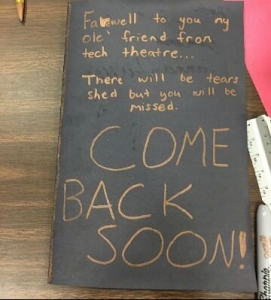 Farewell to you my
ole' friend from
tech theatre...
There will be tears
shed but you will be
missed.
COME
BACK
SOON!
Sharpie